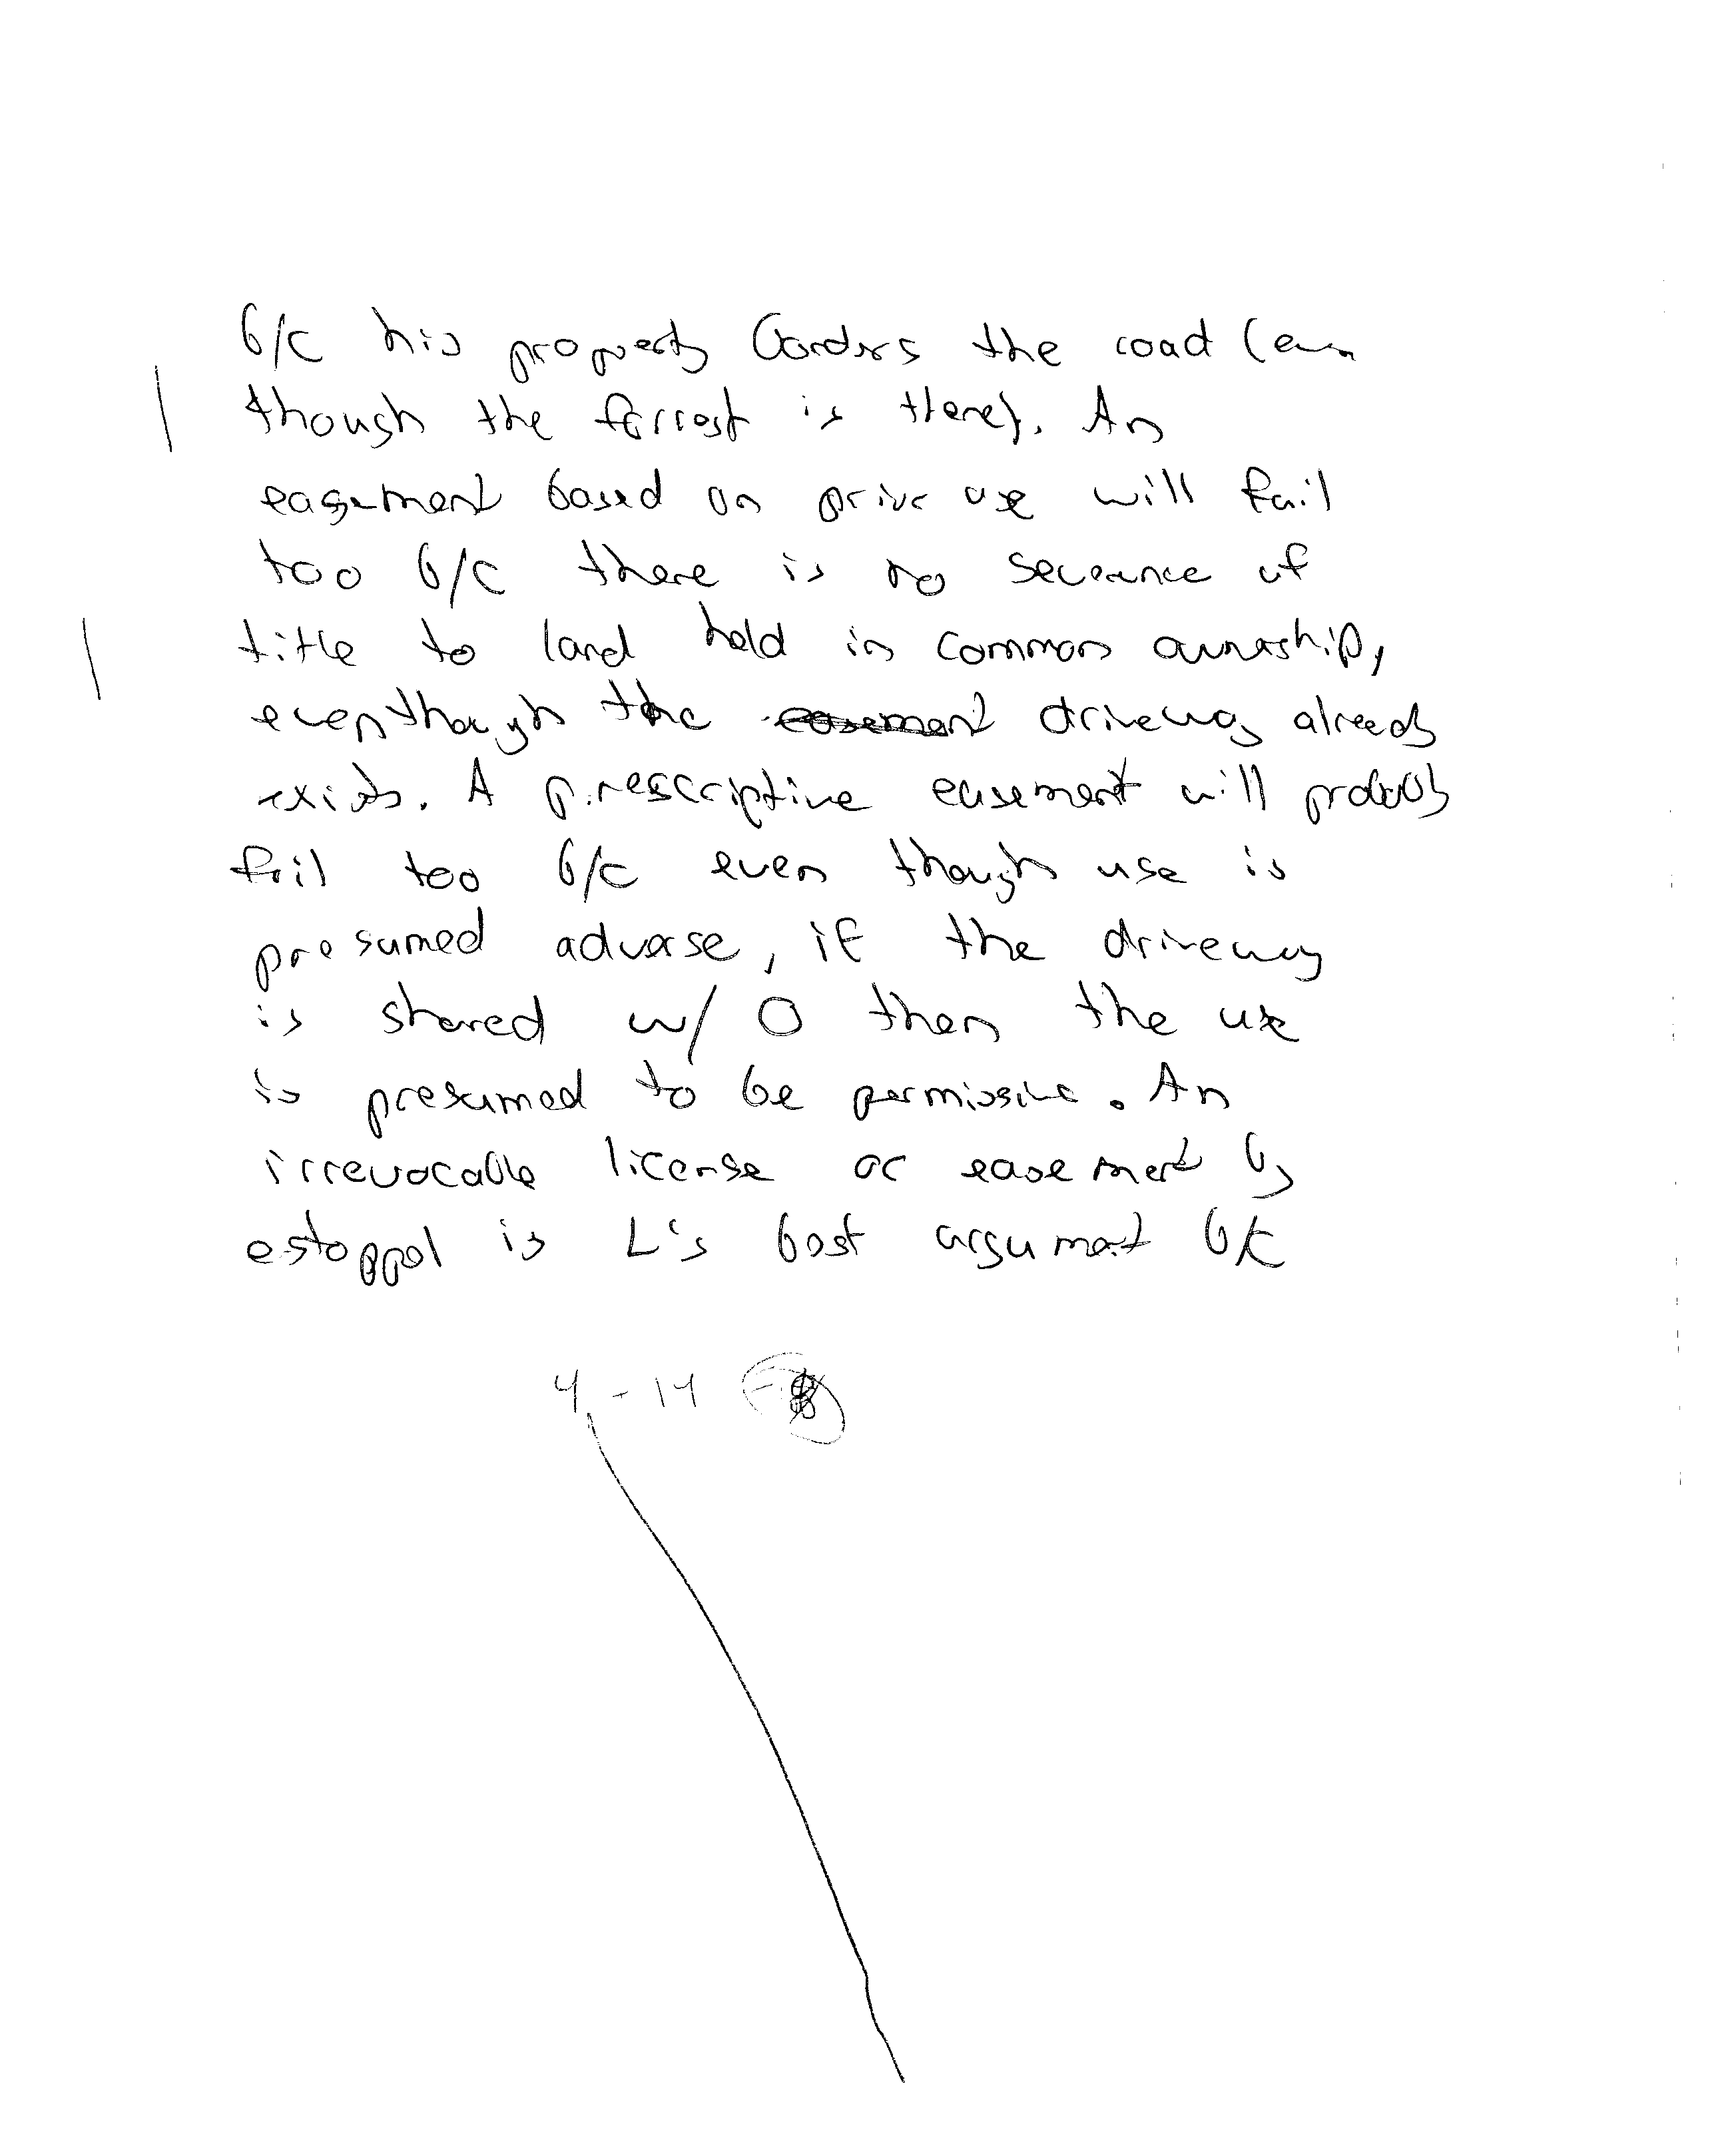 b/c his property borders the road (even
though the forrest is there). An
easement based on prior use will fail
too b/c there is no severance of
title to land held in common ownership,
eventhough the easement driveway already
exists. A prescriptive easement will probably
fail too b/c even though use is
presumed adverse, if the driveway
is shared w/ O then the use
is presumed to be permissive. An
irrevocable license or easement by
estoppel is L's best argument b/c
4-14